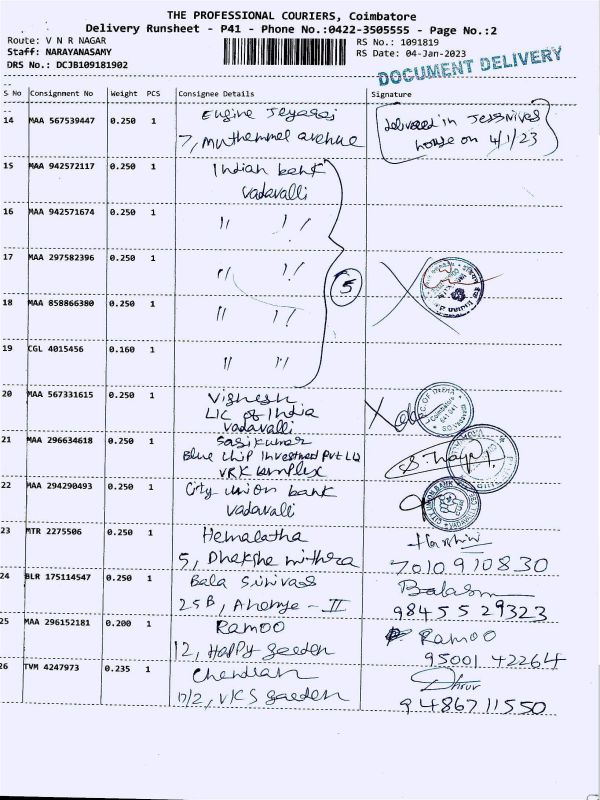 THE PROFESSIONAL COURIERS, Coimbatore
Delivery Runsheet - P41 - Phone No.:0422-3505555 - Page No.:2
Route: V N R NAGAR
Staff: NARAYANASAMY
DRS No.: DCJB109181902
RS No.: 1091819
RS Date: 04-Jan-2023
DOCUMENT DELIVERY
S No Consignment No Weight PCS Consignee Details Signature
14 MAA 567539447 0.250 1 Eugine Jeyaraj
7, Muthammal avenue
delivered in
house on 4/1/23
15 MAA 942572117 0.250 1 Indian bank
vadavalli
16 MAA 942571674 0.250 1 " "
17 MAA 297582396 0.250 1 " "
5
18 MAA 858866380 0.250 1 " "
19 CGL 4015456 0.160 1 " "
20 MAA 567331615 0.250 1 Vignesh
LIC of India
Vadavalli
21 MAA 296634618 0.250 1 Sasikumar
Blue chip Investment Pvt Ltd
VRK Complex
22 MAA 294290493 0.250 1 City union bank
vadavalli
23 MTR 2275506 0.250 1 Hemalatha
5, Dhaksha mithra
Harshini
7010910830
24 BLR 175114547 0.250 1 Bala Srinivas
25B, - II
98455 29323
25 MAA 296152181 0.200 1 Ramoo
12, Happy garden
Ramoo
95001 42264
26 TVM 4247973 0.235 1 Chendran
17/2, VKS garden
Dhruv
9486711550